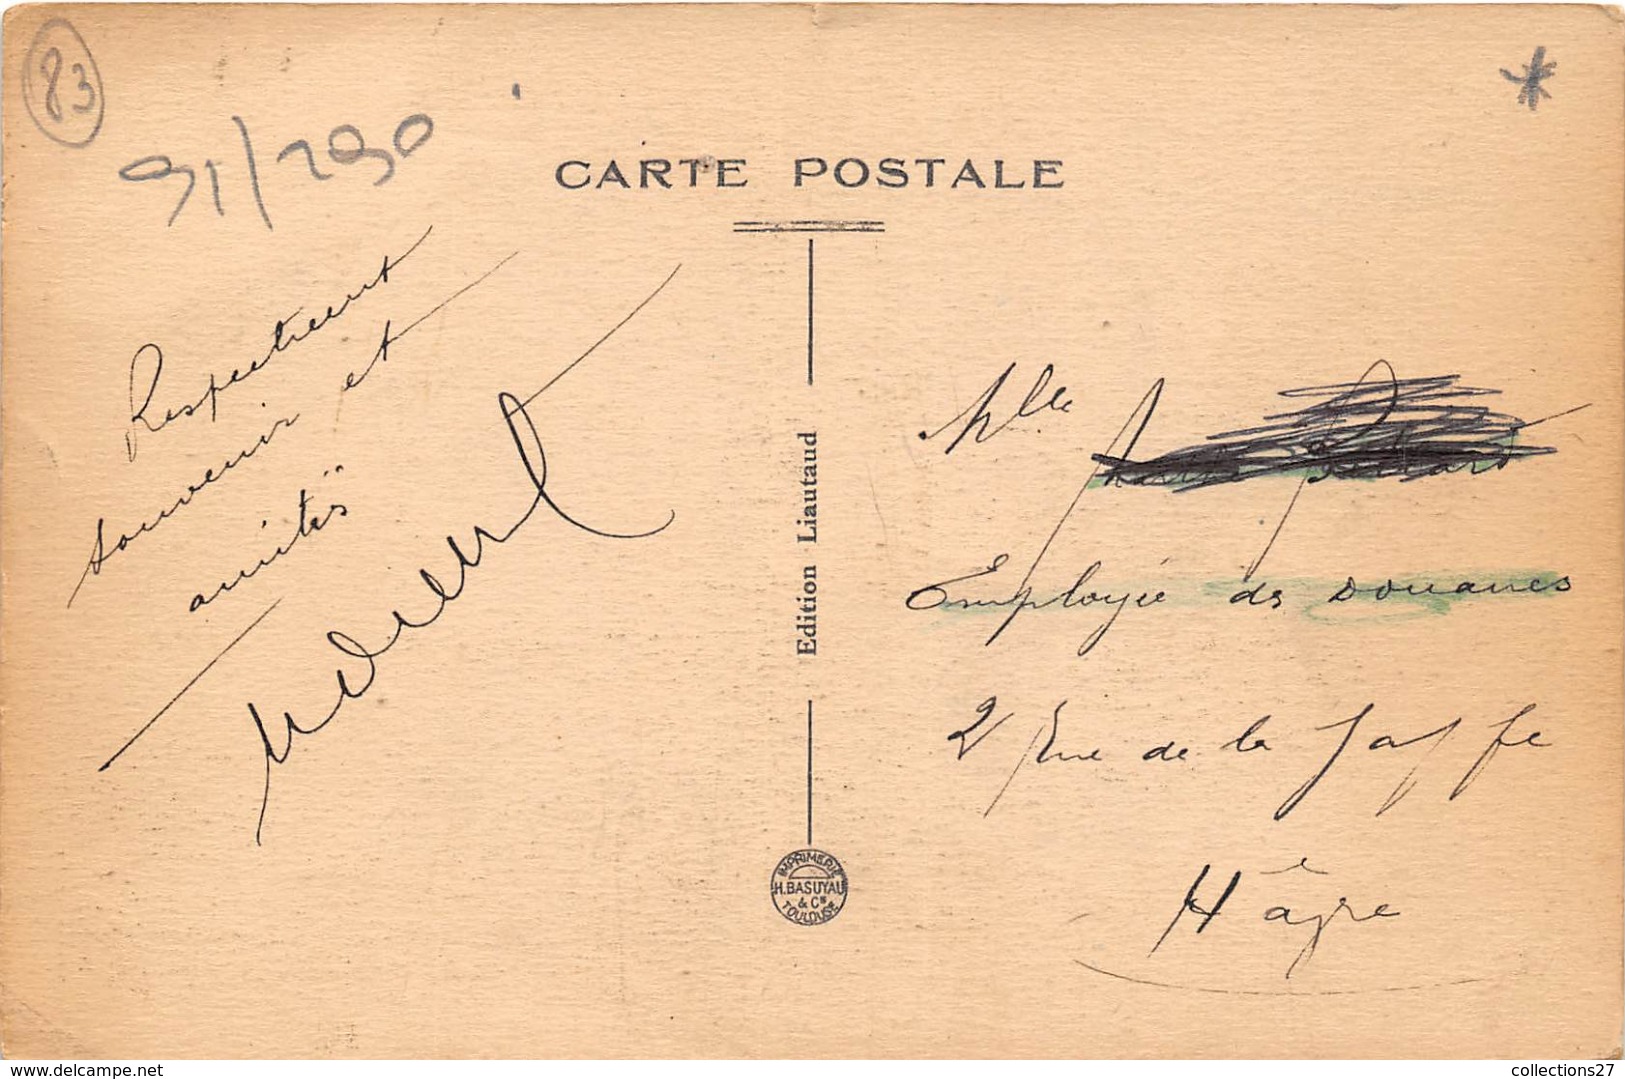 83
91/290
*
CARTE POSTALE
Respectueux
souvenir et
amitiés
Mlle
Employée des Douanes
2 Rue de la
Hâvre
Edition Liautaud
IMPRIMERIE
H. BASUYAU
& Cie
TOULOUSE
https://www.delcampe.net
collections27